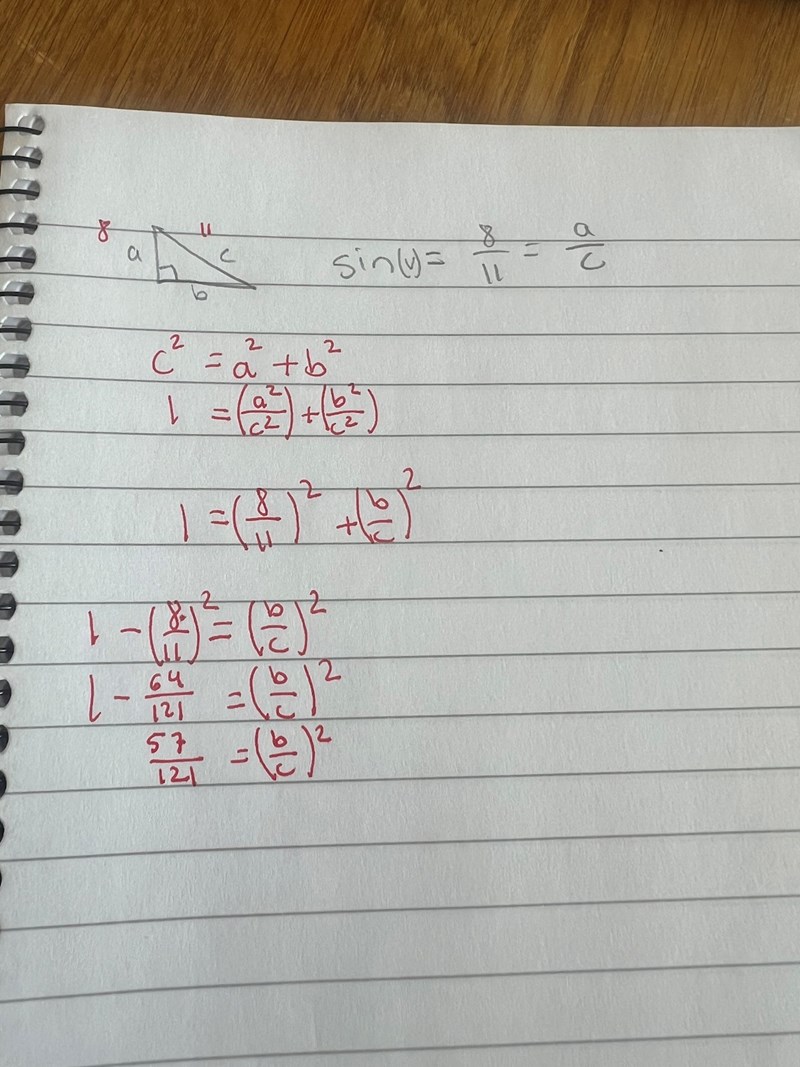 8 11
a c sin(v) = 8/11 = a/c
b
c² = a² + b²
1 = (a²/c²) + (b²/c²)
1 = (8/11)² + (b/c)²
1 - (8/11)² = (b/c)²
1 - 64/121 = (b/c)²
57/121 = (b/c)²